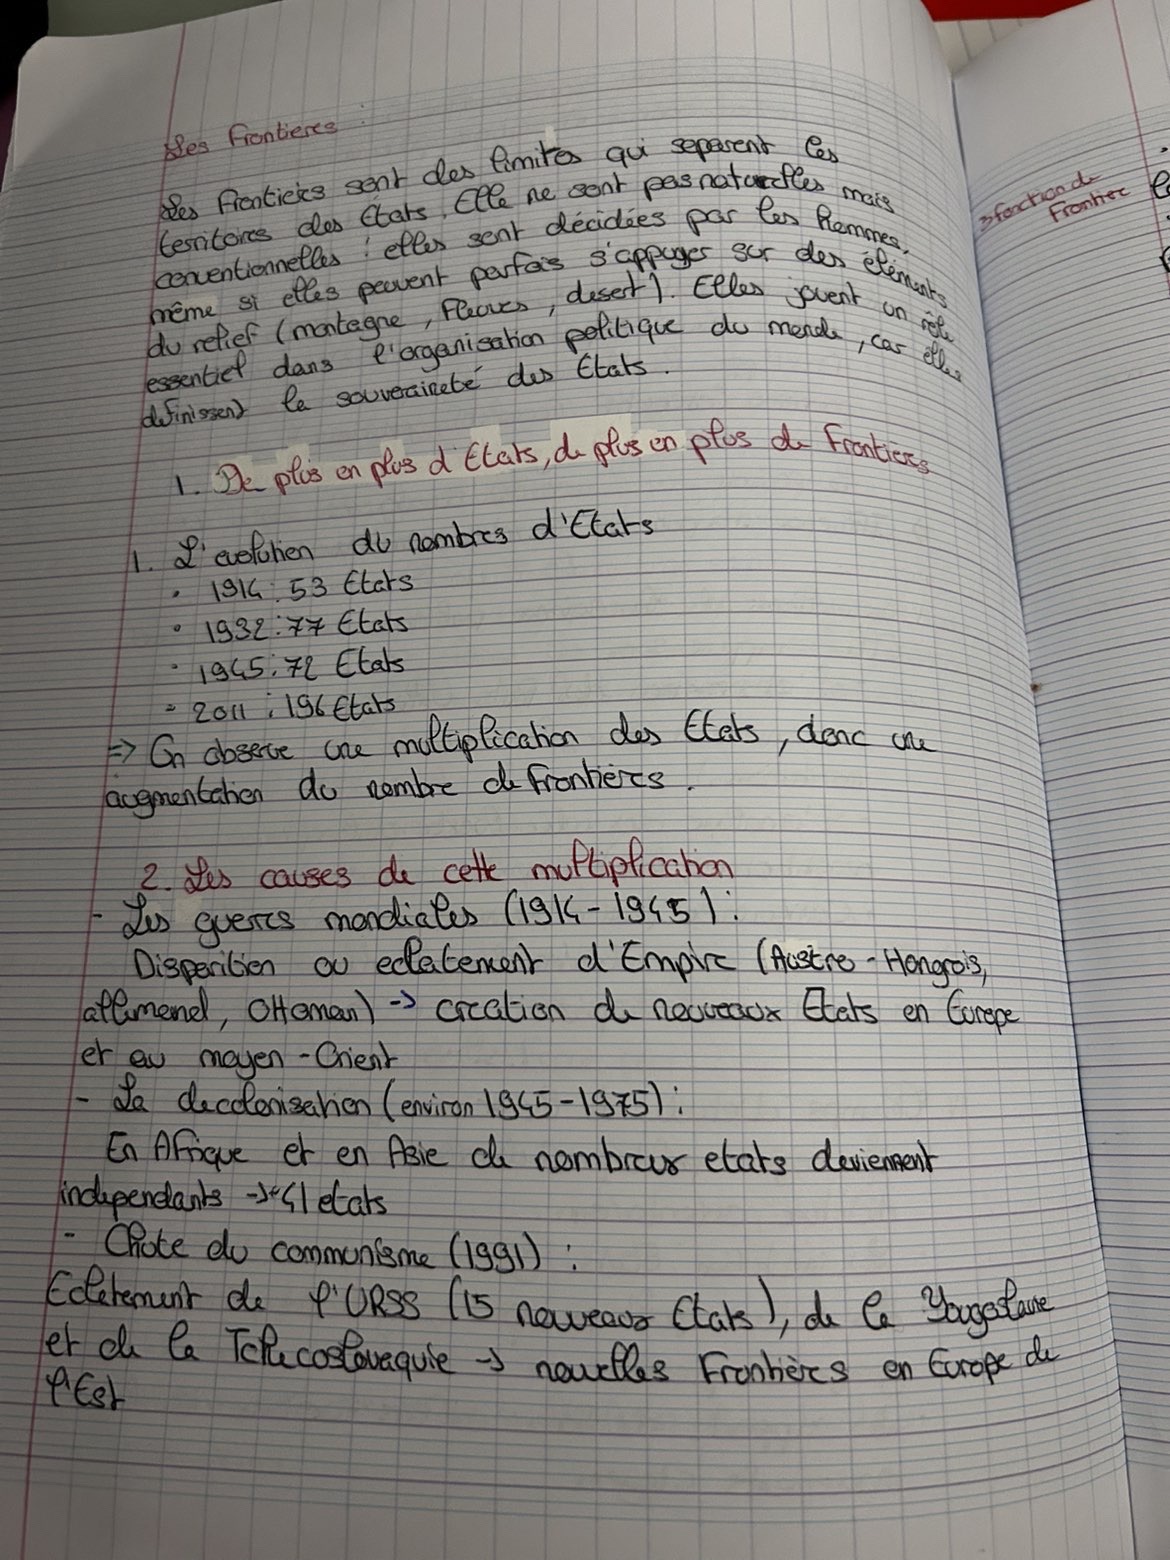 Les Frontieres :
Les frontieres sont des limites qui separent les
territoires des Etats. Elle ne sont pas naturelles mais
conventionnelles : elles sont décidées par les Hommes,
même si elles peuvent parfois s'appuyer sur des éléments
du relief (montagne, Fleuves, desert). Elles jouent un rôle
essentiel dans l'organisation politique du monde, car elles
definissent la souveraineté des Etats.
1. De plus en plus d'Etats, de plus en plus de Frontieres
1. L'evolution du nombres d'Etats
• 1914 : 53 Etats
• 1932 : 77 Etats
• 1945 : 72 Etats
• 2011 : 196 Etats
=> On observe une multiplication des Etats, donc une
augmentation du nombre de frontières.
2. Les causes de cette multiplication
- Les guerres mondiales (1914-1945) :
Disparition ou eclatement d'Empire (Austro-Hongrois,
allemend, Ottoman) -> creation de nouveaux Etats en Europe
et au moyen-Orient
- La decolonisation (environ 1945-1975) :
En Afrique et en Asie de nombreux etats deviennent
independants -> etats
- Chute du communisme (1991) :
Eclatement de l'URSS (15 nouveaux Etats), de la Yougoslavie
et de la Tchecoslovaquie -> nouvelles Frontières en Europe de
l'Est
Frontier